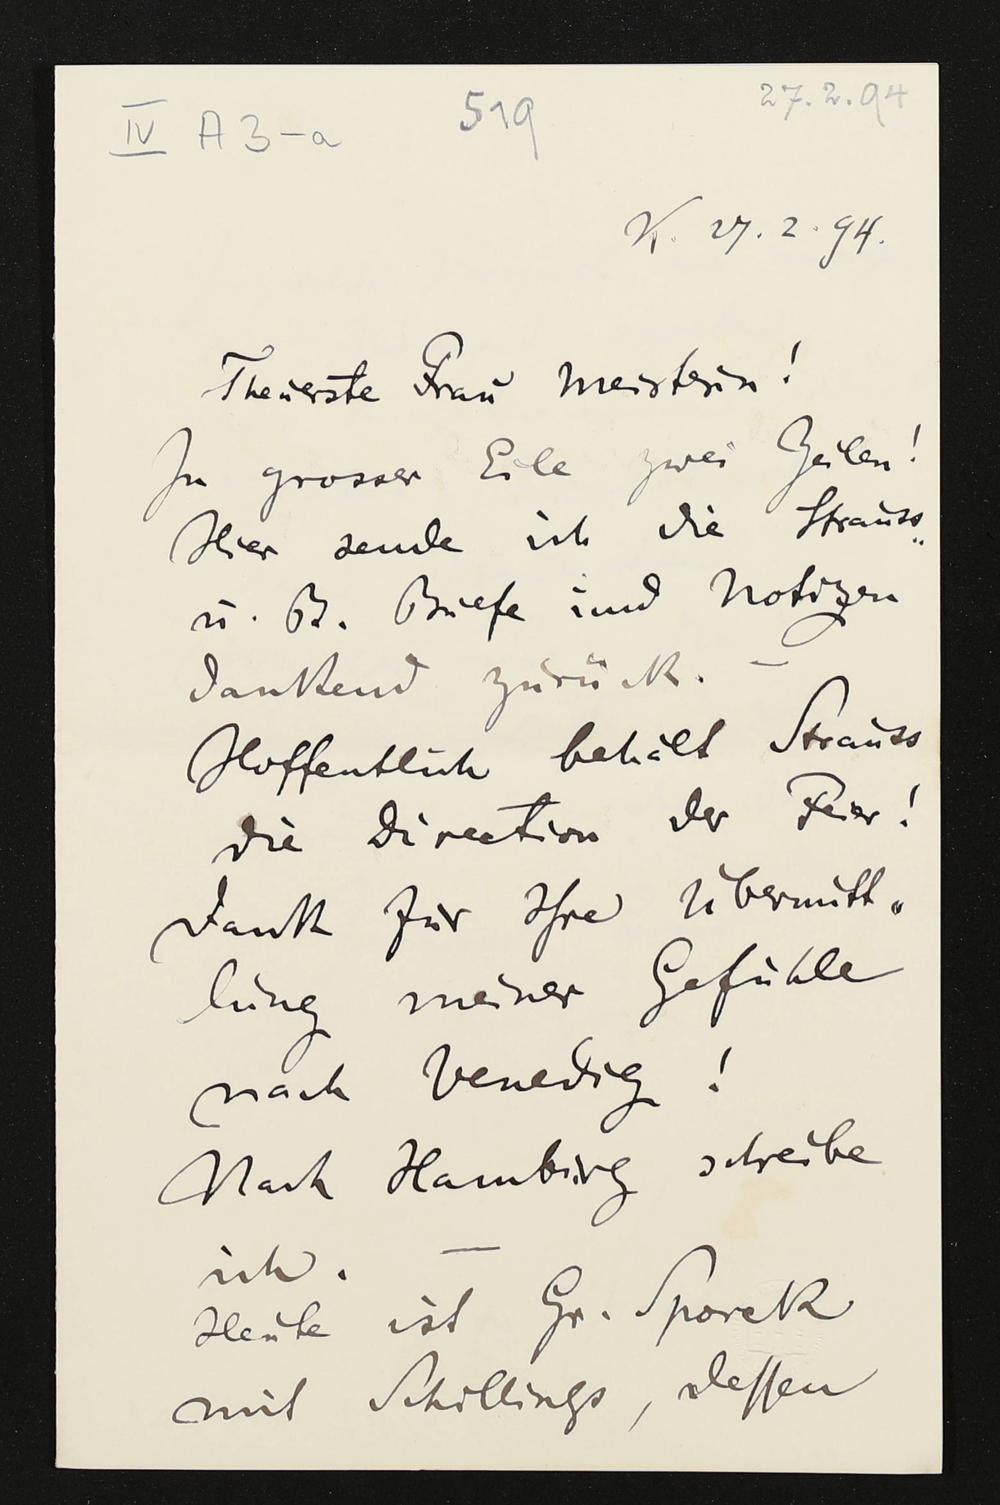 IV A 3-a
519
27.2.94
K. 27. 2. 94.
Theuerste Frau Meisterin!
In grosser Eile zwei Zeilen!
Hier sende ich die Strauss„
u. B. Briefe und Notizen
dankend zurück. —
Hoffentlich behält Strauss
die Direction der Feier!
Dank für Ihre Übermitt„
lung meiner Gefühle
nach Venedig!
Nach Hamburg schreibe
ich. —
Heute ist Gr. Sporck
mit Schillings, dessen